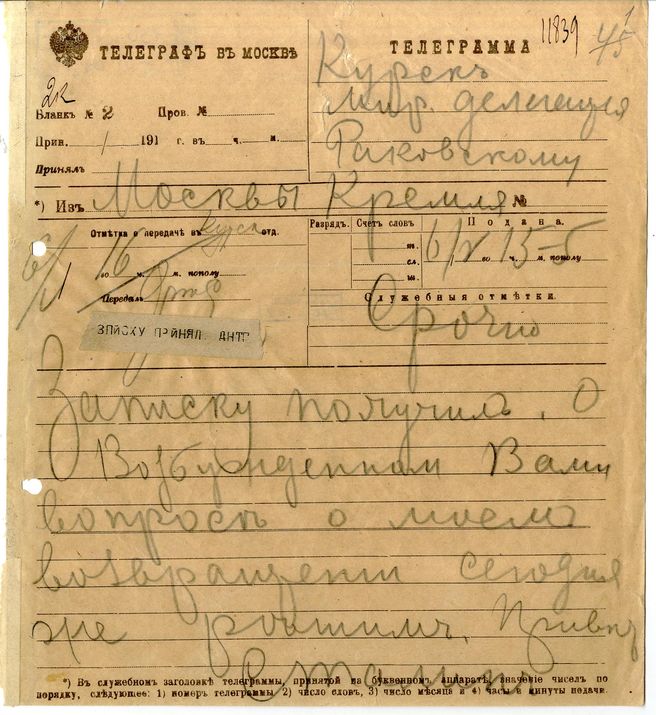 ТЕЛЕГРАФЪ ВЪ МОСКВѢ
ТЕЛЕГРАММА
11839
1
4/5
2к
Бланкъ № 2 Пров. №
Прин. / 191 г. въ ч. м.
Принялъ
Курскъ
Мир. делегация
Раковскому
*) Изъ Москвы Кремля №
Отмѣтка о передачѣ въ Курск отд.
6/V 16
во ч. м. пополу
Передалъ
ЗПИСКУ ПРИНЯЛ. ДНТР
Разрядъ. Счетъ словъ Подана.
т.
сл.
ш.
6/V во 15 ч. 5 м. пополу
Служебныя отмѣтки.
Срочно
Записку получил. О
Возбужденном Вами
вопросе о моем
возвращении сегодня
же решим. Привет
Сталин
*) Въ служебномъ заголовкѣ телеграммы, принятой на буквенномъ аппаратѣ, значеніе чиселъ по
порядку, слѣдующее: 1) номеръ телеграммы 2) число словъ, 3) число мѣсяца и 4) часы и минуты подачи.